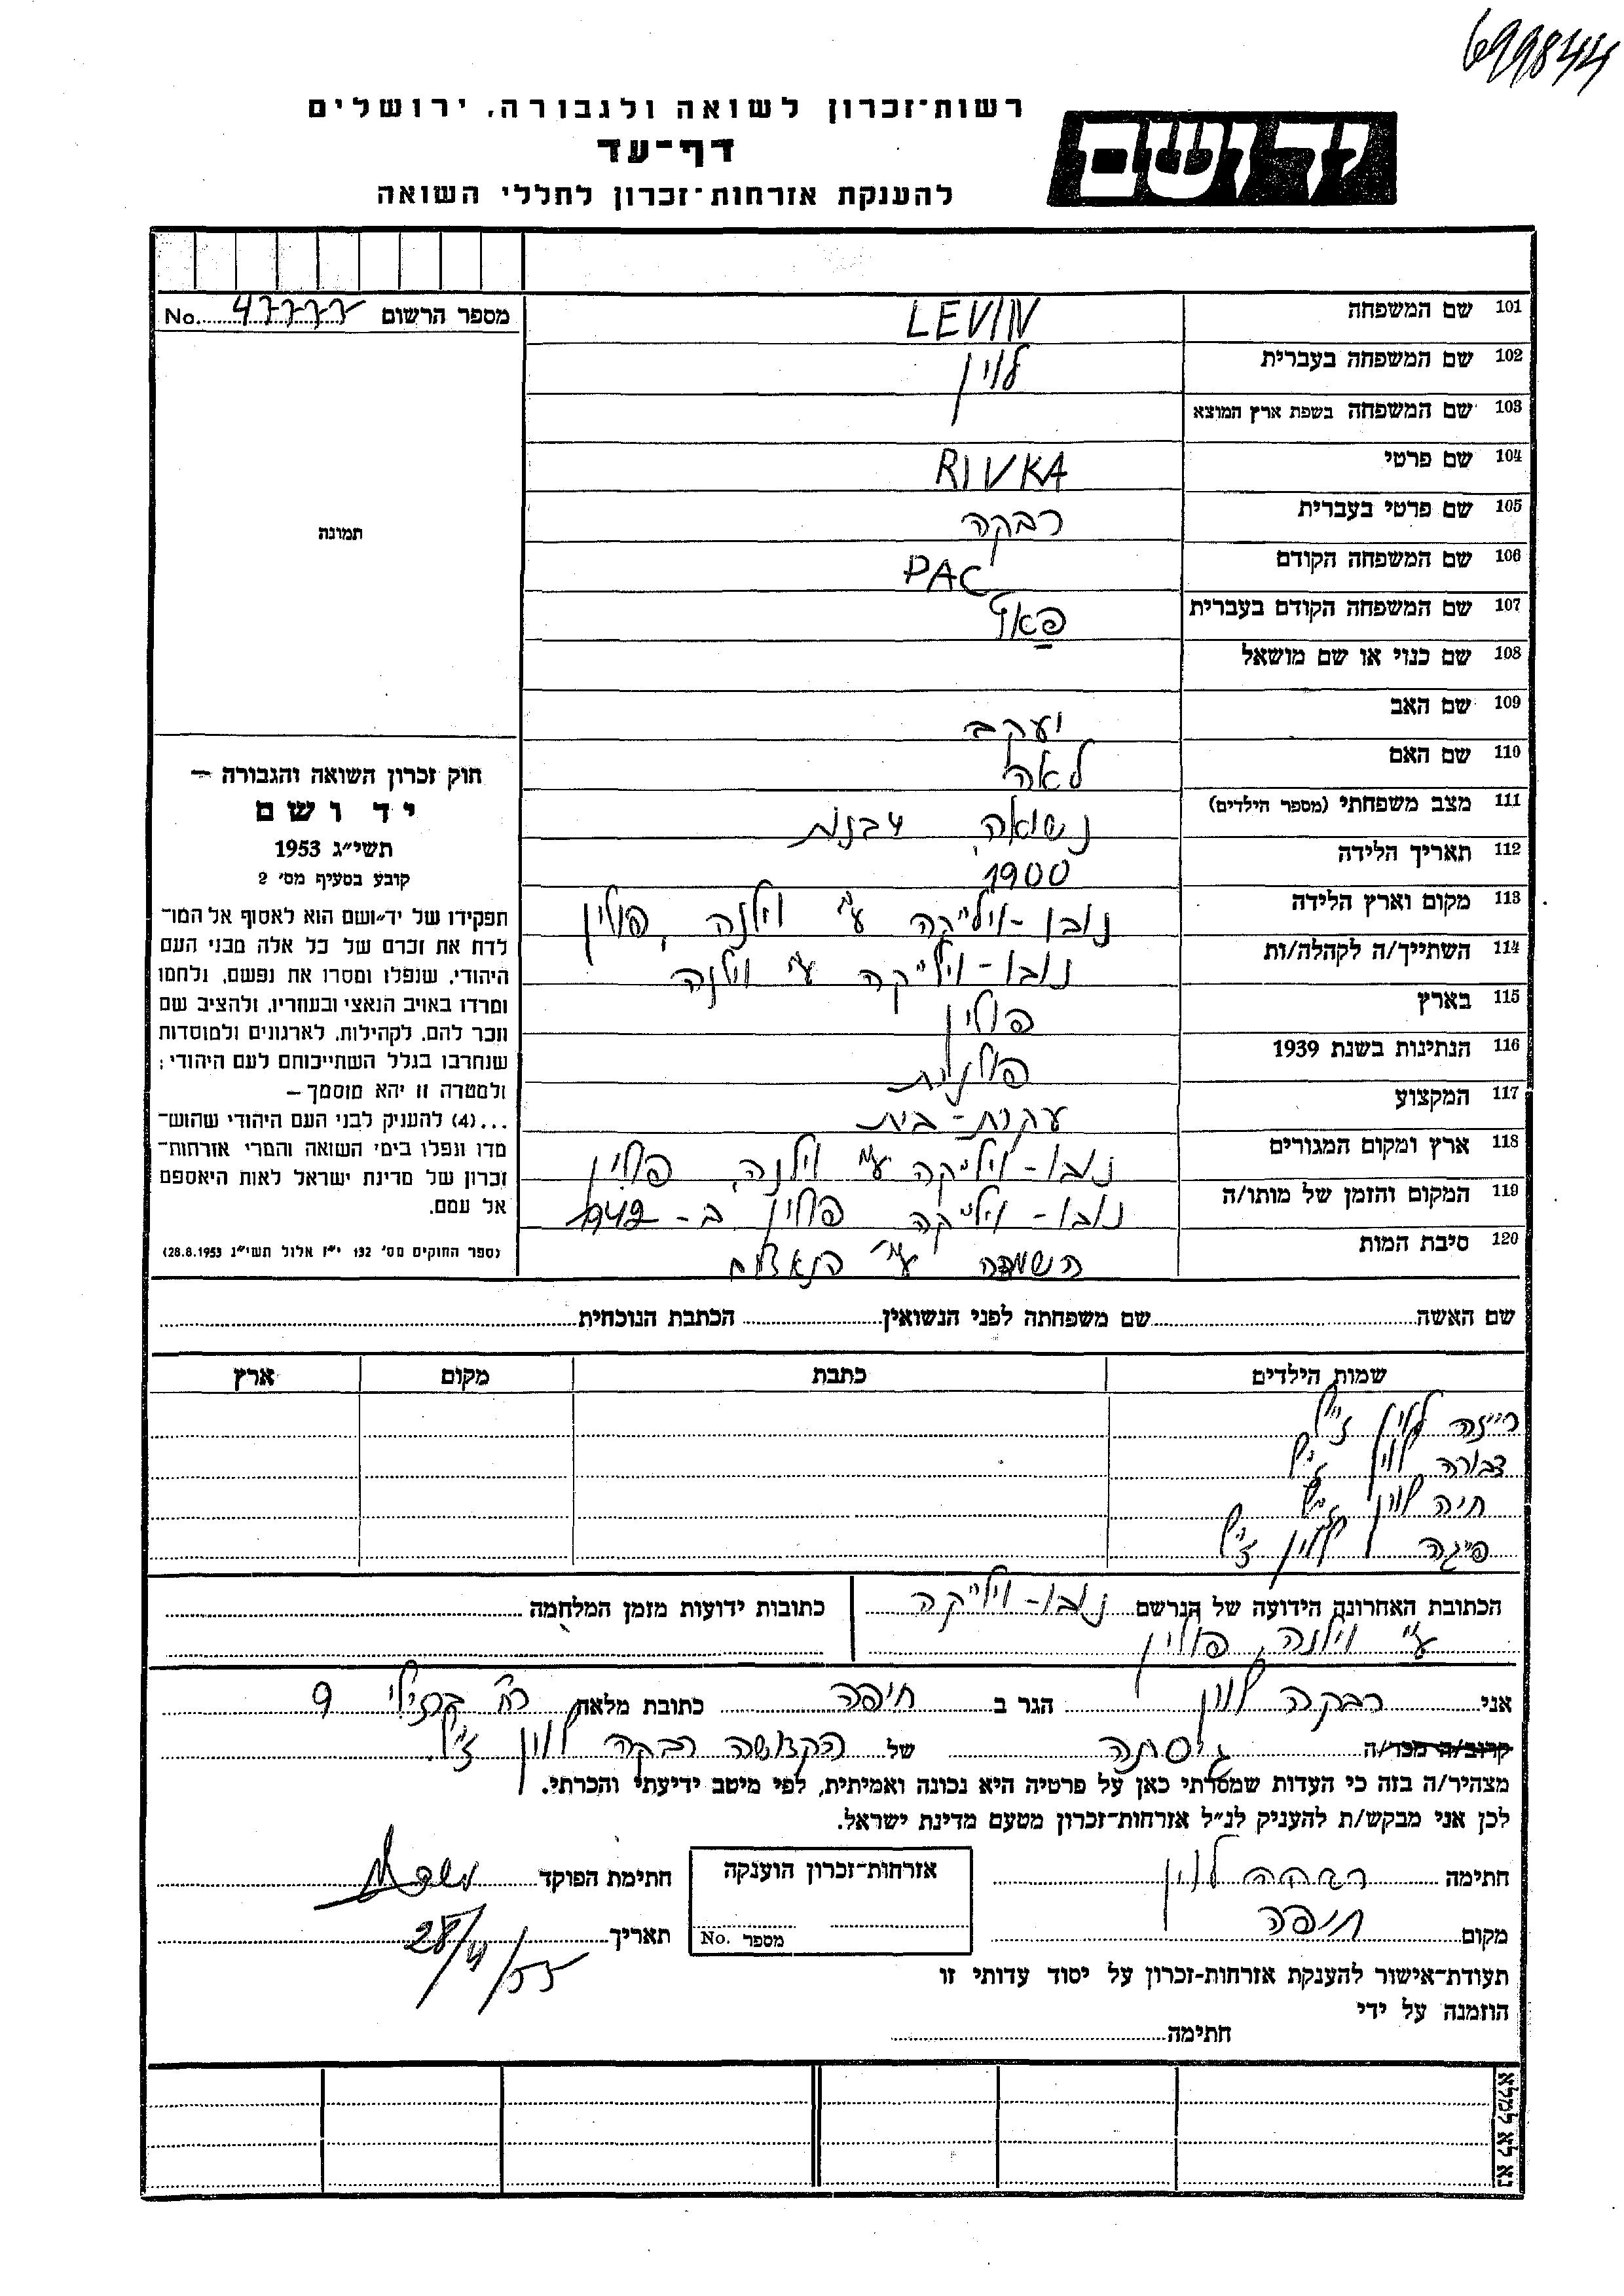 699844
רשות־זכרון לשואה ולגבורה, ירושלים
דף־עד
להענקת אזרחות־זכרון לחללי השואה
יד ושם
מספר הרשום No. 47777
101 שם המשפחה LEVIN
102 שם המשפחה בעברית לוין
103 שם המשפחה בשפת ארץ המוצא
104 שם פרטי RIVKA
105 שם פרטי בעברית רבקה
106 שם המשפחה הקודם PAC
107 שם המשפחה הקודם בעברית פאץ
108 שם כנוי או שם מושאל
109 שם האב יעקב
110 שם האם לאה
111 מצב משפחתי (מספר הילדים) נשואה, 4 בנות
112 תאריך הלידה 1900
113 מקום וארץ הלידה נובו-ויליקה ע"י וילנה, פולין
114 השתייך/ה לקהלה/ות נובו-ויליקה ע"י וילנה
115 בארץ פולין
116 הנתינות בשנת 1939 פולנית
117 המקצוע עקרת-בית
118 ארץ ומקום המגורים נובו-ויליקה ע"י וילנה, פולין
119 המקום והזמן של מותו/ה נובו-ויליקה פולין ב-1942
120 סיבת המות השמדה ע"י הנאצים
תמונה
חוק זכרון השואה והגבורה —
יד ושם
תשי״ג 1953
קובע בסעיף מס׳ 2
תפקידו של יד־ושם הוא לאסוף אל המו־
לדת את זכרם של כל אלה מבני העם
היהודי, שנפלו ומסרו את נפשם, נלחמו
ומרדו באויב הנאצי ובעוזריו, ולהציב שם
וזכר להם, לקהילות, לארגונים ולמוסדות
שנחרבו בגלל השתייכותם לעם היהודי;
ולמטרה זו יהא מוסמך —
...(4) להעניק לבני העם היהודי שהוש־
מדו ונפלו בימי השואה והמרי אזרחות־
זכרון של מדינת ישראל לאות היאספם
אל עמם.
(ספר החוקים מס׳ 132 י״ז אלול תשי״ג 28.8.1953)
שם האשה שם משפחתה לפני הנשואין הכתבת הנוכחית
שמות הילדים כתבת מקום ארץ
רייזה לוין ז"ל
דבורה לוין ז"ל
חיה לוין ז"ל
פיגה לוין ז"ל
הכתובת האחרונה הידועה של הנרשם נובו-ויליקה
ע"י וילנה, פולין
כתובות ידועות מזמן המלחמה
אני רבקה לוין הגר ב חיפה כתובת מלאה רח' ברזילי 9
קרוב/ה מכר/ה גיסתה של הקדושה רבקה לוין ז"ל
מצהיר/ה בזה כי העדות שמסרתי כאן על פרטיה היא נכונה ואמיתית, לפי מיטב ידיעתי והכרתי.
לכן אני מבקש/ת להעניק לנ״ל אזרחות־זכרון מטעם מדינת ישראל.
חתימה רבקה לוין
מקום חיפה
אזרחות־זכרון הוענקה
מספר No.
חתימת הפוקד
תאריך
תעודת־אישור להענקת אזרחות־זכרון על יסוד עדותי זו
הוזמנה על ידי
חתימה
נא לא למלא